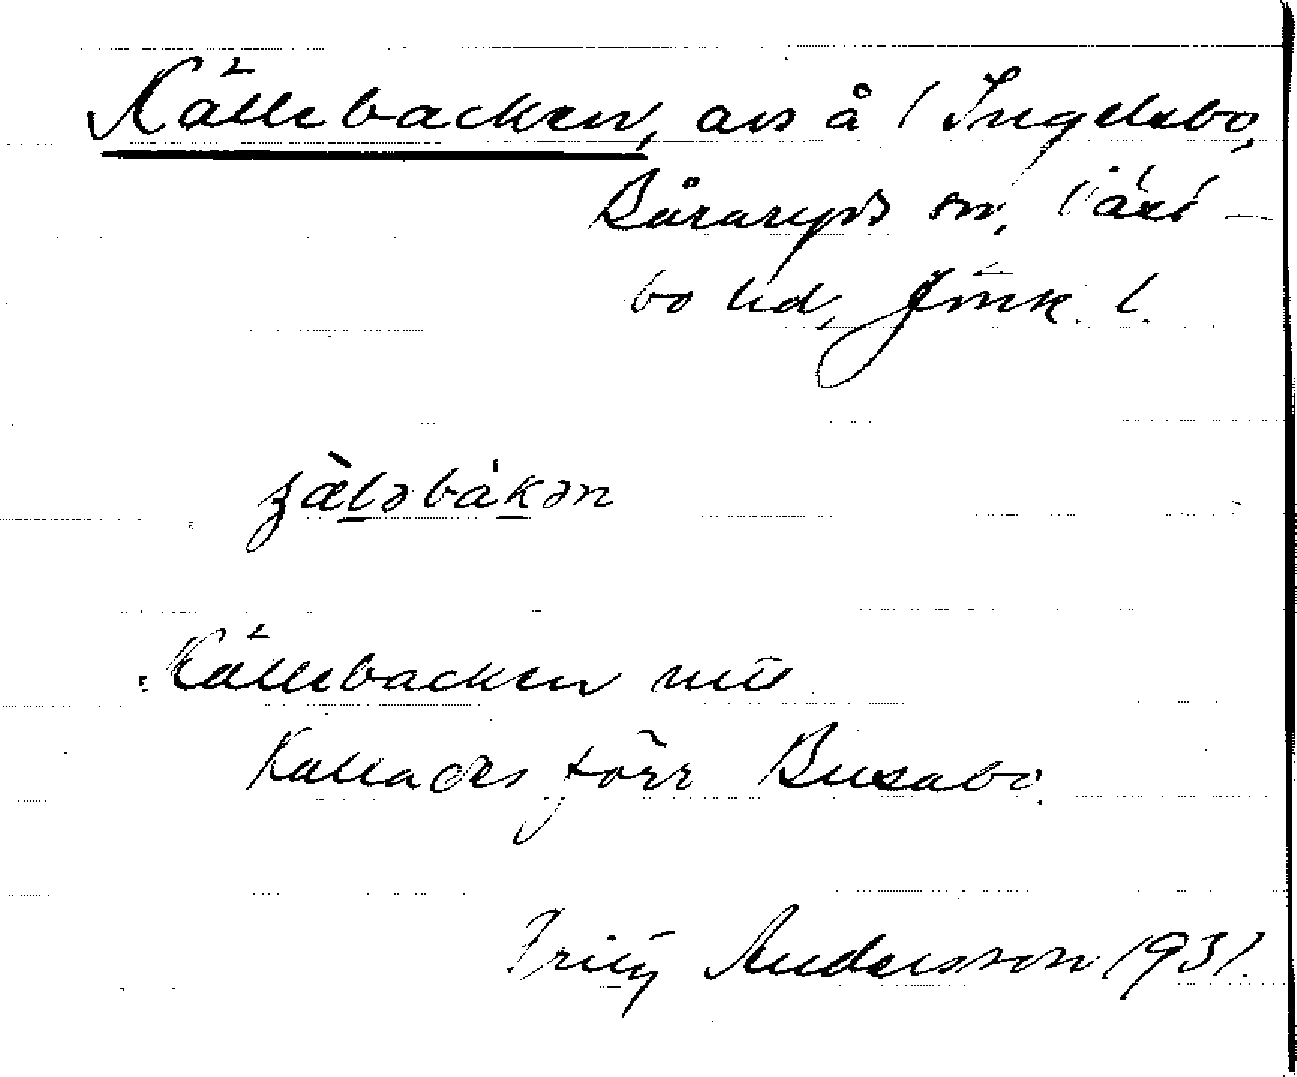 Källebacken, avs å l Ingelsbo,
Båraryds sn, Väst-
bo hd, Jönk. l.
Källebacken nu
Kallades förr Busabo.
Fritz Andersson 1931.